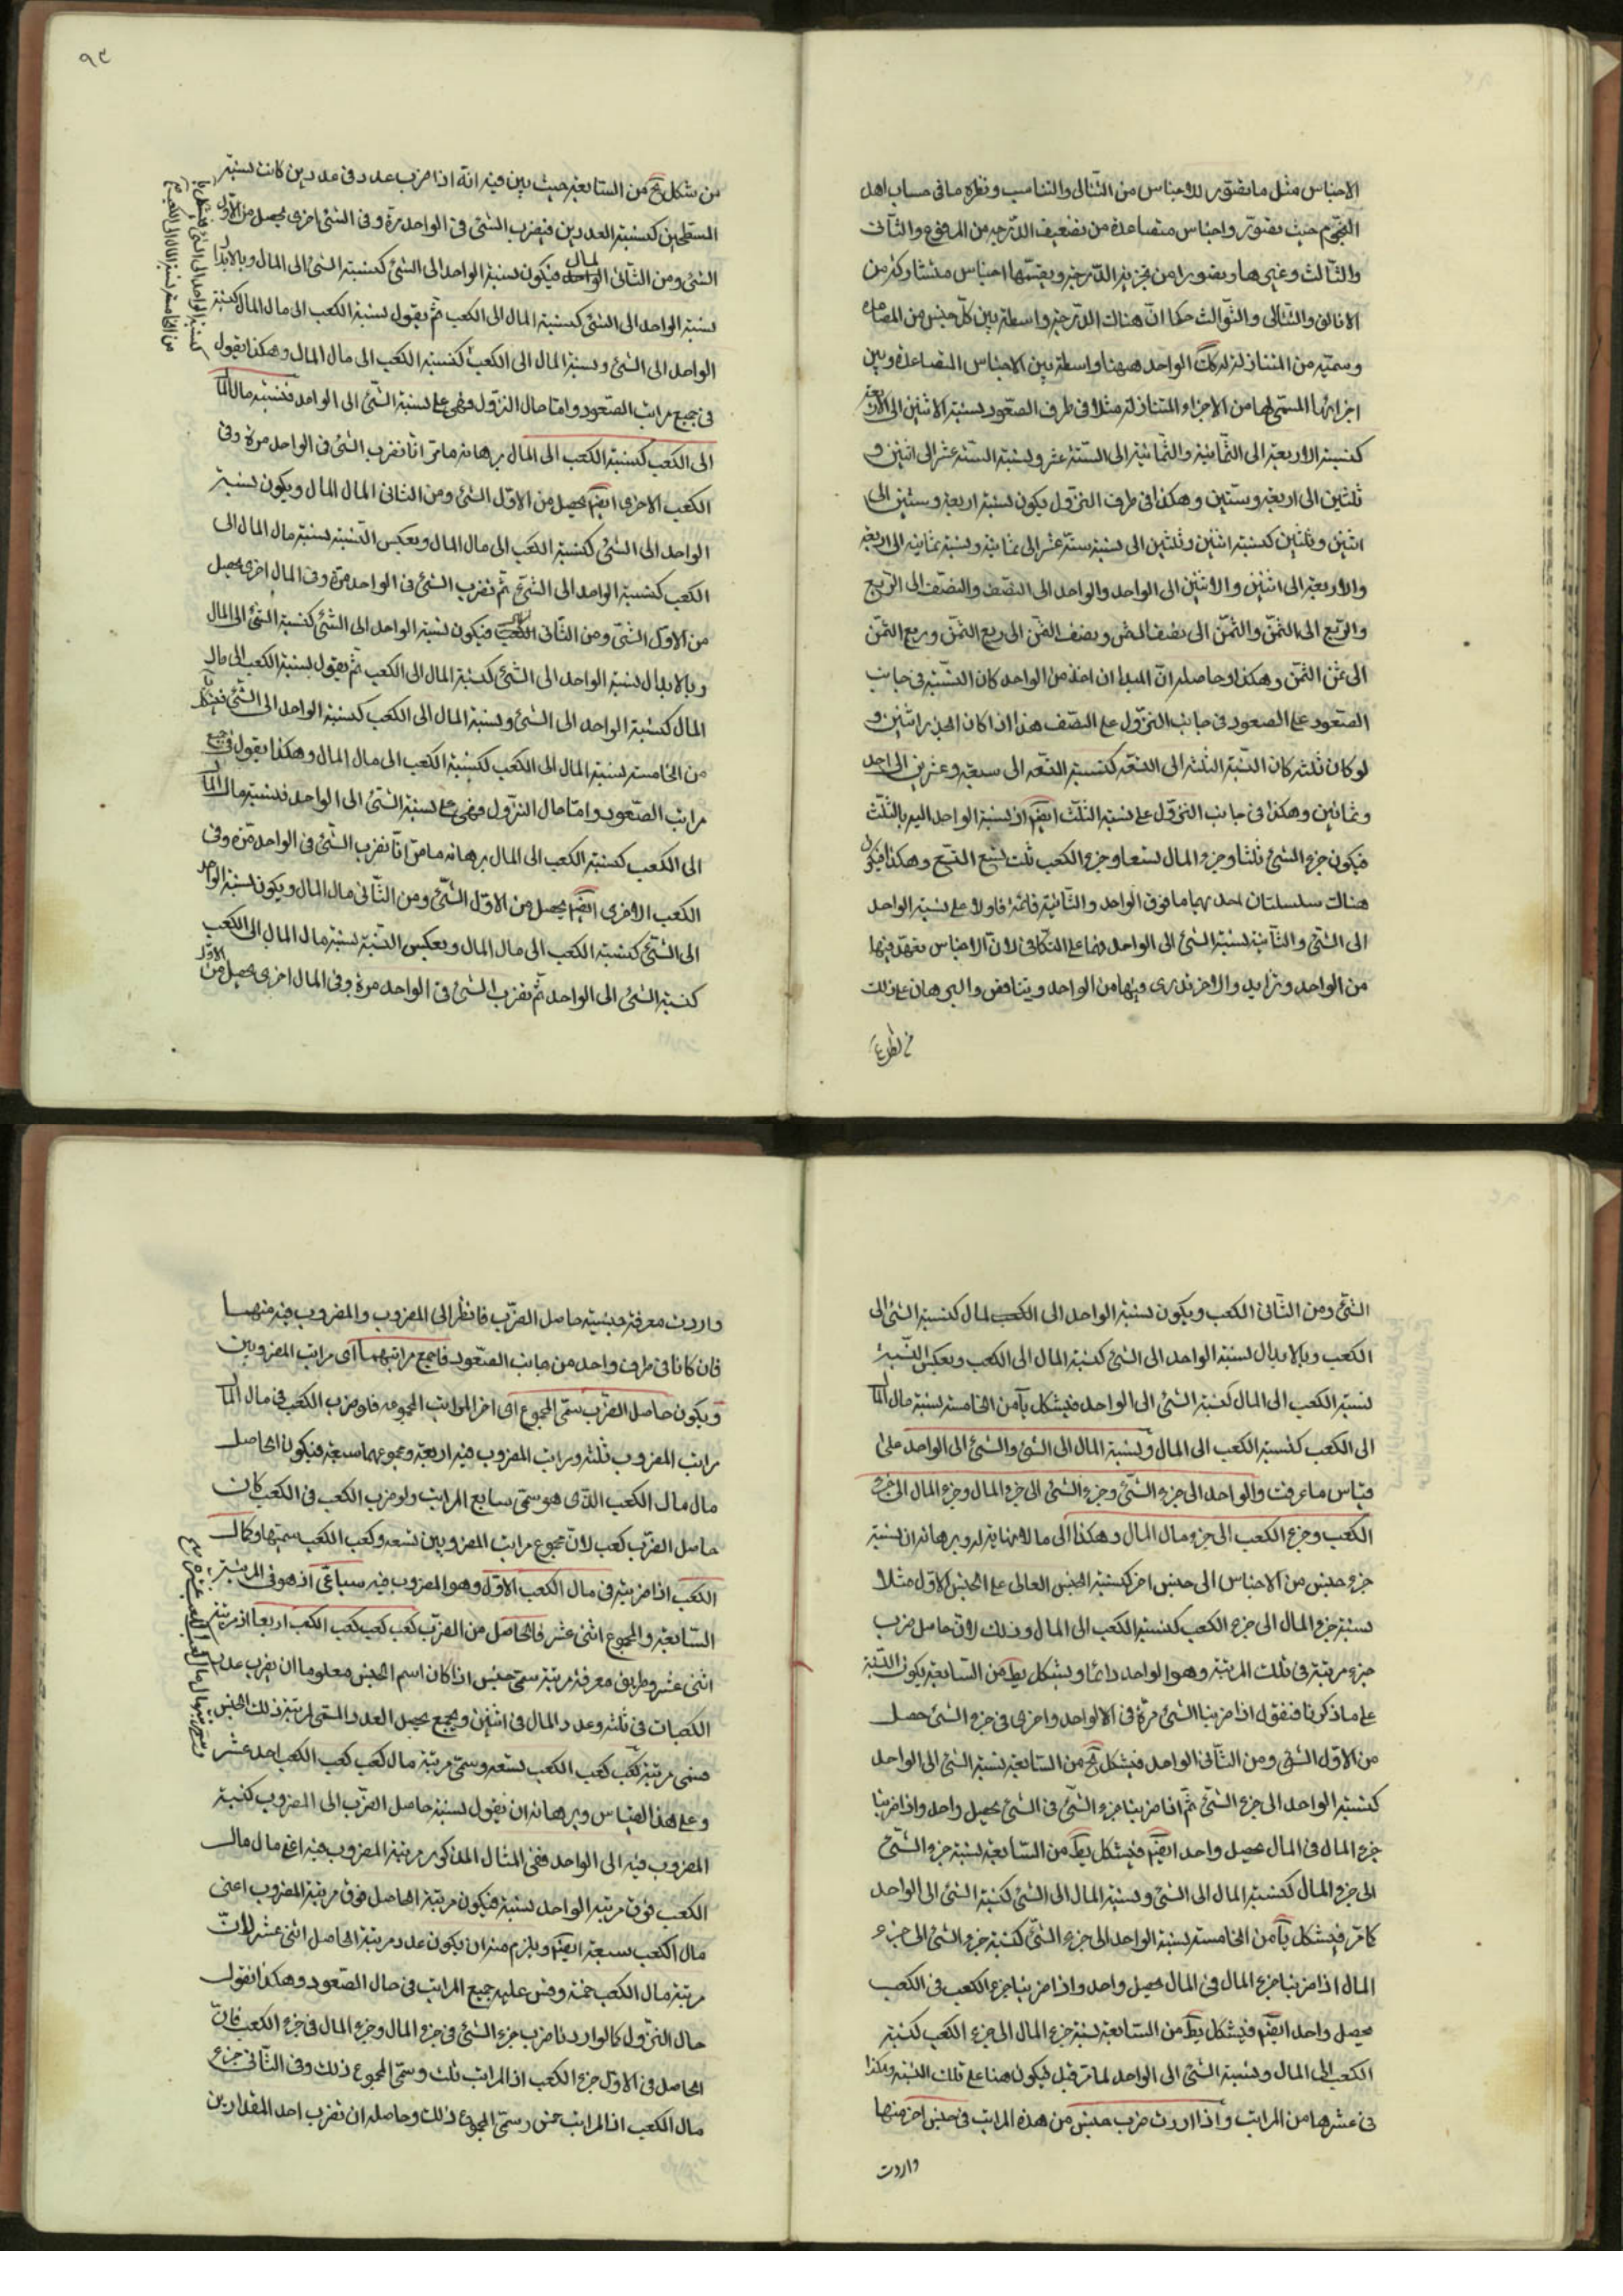 الاجناس مثل ما يتصور للاجناس من التتالى والتناسب ونظيره ما فى حساب اهل
النجوم حيث يتصور واجناس متصاعدة من تضعيف الدرجه من المرفوع والثانى
والثالث وغيرها ويتصورا من تجزية الدرجة ويقسمها اجناس
والثوالث حكما ان هناك الدرجة واسطة بين كل جنس من المتصاعده
وسميه من المتنازلة كذلك الواحد ههنا واسطة بين الاجناس المتصاعدة وبين
اجزائها المسمى لها من الاجزاء المتنازلة مثلا فى طرف الصعود نسبة الاثنين الى الاربعة
كنسبة الاربعة الى الثمانية والثمانية الى الستة عشر ونسبة الستة عشر الى اثنين و
ثلثين الى اربعة وستين وهكذا فى طرف النزول يكون نسبة اربعة وستين الى
اثنين وثلثين كنسبة اثنين وثلثين الى نسبة ستة عشر الى ثمانية ونسبة ثمانيه الى اربعة
والاربعة الى اثنين والاثنين الى الواحد والواحد الى النصف والنصف الى الربع
والربع الى الثمن والثمن الى نصف الثمن ونصف الثمن الى ربع الثمن وربع الثمن
الى ثمن الثمن وهكذا وحاصله ان المبدا ان اخذ من الواحد كان النسبة فى جانب
الصعود على الصعود فى جانب النزول على النصف هذا اذا كان الجذر اثنين و
لو كان ثلثه كان النسبة الثلثه الى التسعه كنسبة التسعه الى سبعة وعشرين الى احد
وثمانين وهكذا فى جانب النزول على نسبة الثلث ايضم اذ نسبة الواحد اليه بالثلث
فيكون جزء الشئ ثلثا وجزء المال تسعا وجزء الكعب ثلث تسع وهكذا فيكون
هناك سلسلتان احديهما ما فوق الواحد والثانية فالاولا على نسبة الواحد
الى الشئ والثانية نسبة الشئ الى الواحد فهما على التكافى لان الاجناس
من الواحد وتزايد والاخر من الواحد ويتناقض والبرهان على ذلك
من شكل يح من السابعة حيث بين فيه انه اذا ضرب عدد فى عددين كانت نسبة
المسطحين كنسبة العددين فيضرب الشئ فى الواحد مرة وفى الشئ اخرى يحصل من الاول
الشئ ومن الثانى المال فيكون نسبة الواحد الى الشئ كنسبة الشئ الى المال وبالابدال
نسبة الواحد الى الشئ كنسبة المال الى الكعب ثم يقول نسبة الكعب الى مال المال كنسبة
الواحد الى الشئ ونسبة المال الى الكعب كنسبة الكعب الى مال المال وهكذا يقول
فى جميع مراتب الصعود واما حال النزول فهى على نسبة الشئ الى الواحد فنسبة مال المال
الى الكعب كنسبة الكعب الى المال برهانه ما مر انا نضرب الشئ فى الواحد مرة وفى
الكعب الاخرى ايضم يحصل من الاول الشئ ومن الثانى المال المال ويكون نسبة
الواحد الى الشئ كنسبة الكعب الى مال المال وبعكس النسبة نسبة مال المال الى
الكعب كنسبة الواحد الى الشئ ثم نضرب الشئ فى الواحد مرة وفى المال اخرى يحصل
من الاول الشئ ومن الثانى الكعب فيكون نسبة الواحد الى الشئ كنسبة الشئ الى المال
وبالابدال نسبة الواحد الى الشئ كنسبة المال الى الكعب ثم يقول نسبة الكعب الى مال
المال كنسبة الواحد الى الشئ ونسبة المال الى الكعب كنسبة الواحد الى الشئ فبشكل يا
من الخامسة نسبة المال الى الكعب كنسبة الكعب الى مال المال وهكذا يقول فى جميع
مراتب الصعود واما حال النزول فهى على نسبة الشئ الى الواحد فنسبة مال المال
الى الكعب كنسبة الكعب الى المال برهانه ما مر انا نضرب الشئ فى الواحد مرة وفى
الكعب الاخرى ايضم يحصل من الاول الشئ ومن الثانى مال المال ويكون نسبة الواحد
الى الشئ كنسبة الكعب الى مال المال وبعكس النسبة نسبة مال المال الى الكعب
كنسبة الشئ الى الواحد ثم نضرب الشئ فى الواحد مرة وفى المال اخرى يحصل من الاول
الشئ ومن الثانى الكعب ويكون نسبة الواحد الى الكعب لمال كنسبة الشئ الى
الكعب وبالابدال نسبة الواحد الى الشئ كنسبة المال الى الكعب وبعكس النسبة
نسبة الكعب الى المال كنسبة الشئ الى الواحد فبشكل يا من الخامسة نسبة مال المال
الى الكعب كنسبة الكعب الى المال ونسبة المال الى الشئ والشئ الى الواحد على
قياس ما عرفت والواحد الى جزء الشئ وجزء الشئ الى جزء المال وجزء المال الى جزء
الكعب وجزء الكعب الى جزء مال المال وهكذا الى ما لا نهاية له وبرهانه ان نسبة
جزء جنس من الاجناس الى جنس اخر كنسبة الجنس العالى على الجنس الاول مثلا
نسبة جزء المال الى جزء الكعب كنسبة الكعب الى المال وذلك لان حاصل ضرب
جزء مرتبة فى تلك المرتبة وهو الواحد دائما وبشكل يط من السابعة يكون النسبة
على ما ذكرنا فنقول اذا ضربنا الشئ مرة فى الواحد واخرى فى جزء الشئ حصل
من الاول الشئ ومن الثانى الواحد فبشكل يح من السابعة نسبة الشئ الى الواحد
كنسبة الواحد الى جزء الشئ ثم اذا ضربنا جزء الشئ فى الشئ يحصل واحد واذا ضربنا
جزء المال فى المال يحصل واحد ايضم فبشكل يط من السابعة نسبة جزء الشئ
الى جزء المال كنسبة المال الى الشئ ونسبة المال الى الشئ كنسبة الشئ الى الواحد
كما مر فبشكل يا من الخامسة نسبة الواحد الى جزء الشئ كنسبة جزء الشئ الى جزء
المال اذا ضربنا جزء المال فى المال يحصل واحد واذا ضربنا جزء الكعب فى الكعب
يحصل واحد ايضم فبشكل يط من السابعة نسبة جزء المال الى جزء الكعب كنسبة
الكعب الى المال ونسبة الشئ الى الواحد لما مر قبل فيكون هنا على تلك النسبة وهكذا
فى عشرها من المراتب واذا اردت ضرب جنس من هذه المراتب فى جنس اخر منها
واردت
واردت معرفة جنسية حاصل الضرب فانظر الى المضروب والمضروب فيه منهما
فان كانا فى طرف واحد من جانب الصعود فاجمع مراتبهما اى مراتب المضروبين
ويكون حاصل الضرب سمى المجموع اى اخر المراتب المجموعه فلو ضرب الكعب فى مال المال
مراتب المضروب ثلثه ومراتب المضروب فيه اربعة ومجموعهما سبعة فيكون الحاصل
مال مال الكعب الذى هو سمى سابع المراتب ولو ضرب الكعب فى الكعب كان
حاصل الضرب كعب لان مجموع مراتب المضروبين تسعه وكعب الكعب سميها وكمال
الكعب اذا ضربته فى مال الكعب الاول وهو المضروب فيه سباعى اذ هو فى المرتبة
السابعة والمجموع اثنى عشر فالحاصل من الضرب كعب كعب كعب الكعب اربعا اذ مرتبته
اثنى عشر وطريق معرفة مرتبة سمى جنس اذا كان اسم الجنس معلوما ان يضرب عدد
الكعبات فى ثلثه وعدد المال فى اثنين ويجمع يحصل العدد المسمى لمرتبة ذلك الجنس
فسمى مرتبة كعب كعب الكعب تسعه وسمى مرتبة مال كعب كعب الكعب احد عشر
وعلى هذا القياس وبرهانه ان يقول نسبة حاصل الضرب الى المضروب كنسبة
المضروب فيه الى الواحد ففى المثال المذكور مرتبة المضروب فيه اعنى مال مال
الكعب فوق مرتبة الواحد بسبعة فيكون مرتبة الحاصل فوق مرتبة المضروب اعنى
مال الكعب سبعة ايضم ويلزم منه ان يكون عدد مرتبة الحاصل اثنى عشر لان
مرتبة مال الكعب خمسة وقس عليه جميع المراتب فى حال الصعود وهكذا نقول
حال النزول كما لو اردنا ضرب جزء الشئ فى جزء المال وجزء المال فى جزء الكعب فان
الحاصل فى الاول جزء الكعب اذ المراتب ثلث وسمى المجموع ذلك وفى الثانى جزء
مال الكعب اذ المراتب خمس وسمى المجموع ذلك وحاصله ان نضرب احد المقدارين